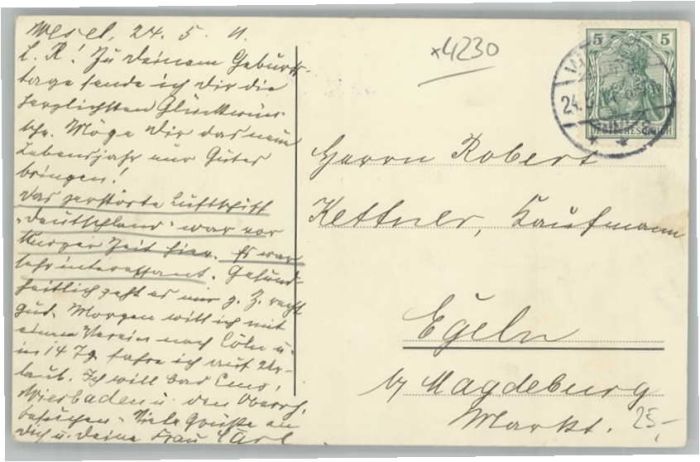 Wesel, 24. 5. 11.
L. R! Zu deinem Geburts-
tage sende ich dir die
herzlichsten Glückwün-
sche. Möge dir das neue
Lebensjahr nur Gutes
bringen!
Das zerstörte Luftschiff
„Deutschland“ war vor
kurzer Zeit hier. Es war
sehr interessant. Gesund-
heitlich geht es mir z. Z. recht
gut. Morgen will ich mit
einem Verein nach Cöln u.
in 14 Tg. fahre ich auf Ur-
laub. Ich will Bad Ems,
Wiesbaden u. den Oberrh.
besuchen. Viele Grüße an
dich u. deine Frau Carl
x4230
5 5
DEUTSCHES REICH
24.5.11
Herrn Robert
Kettner, Kaufmann
Egeln
by Magdeburg
Markt.
25,-